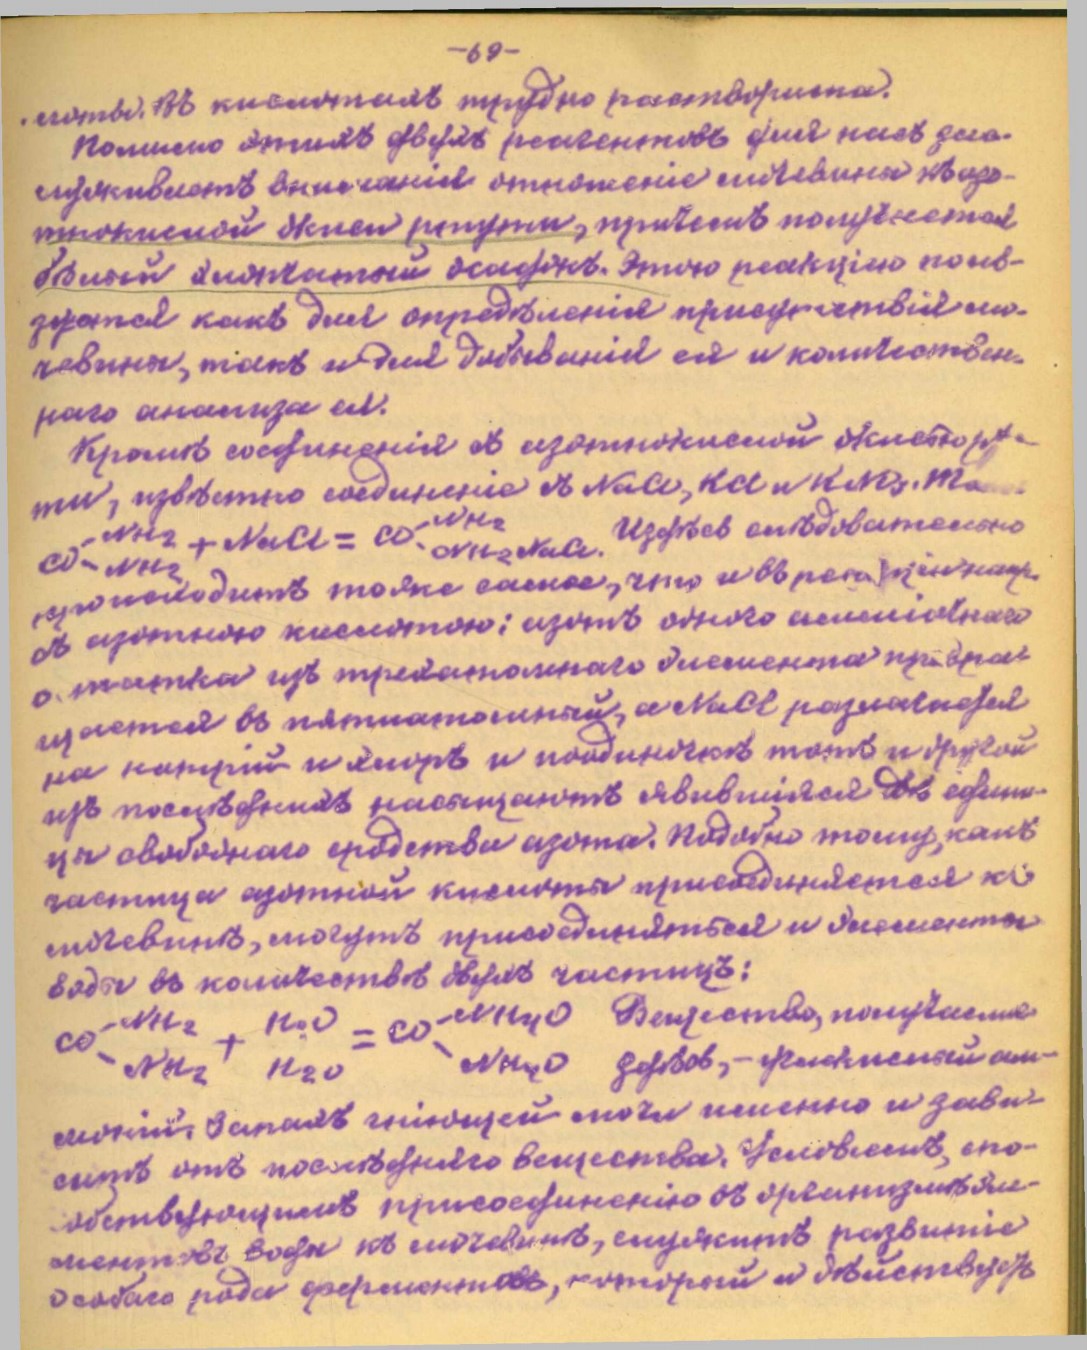 -69-
лоты. Въ кислотахъ трудно растворима.
Помимо этихъ двухъ реагентовъ для насъ засл-
уживаетъ вниманія отношеніе мочевины къ азо-
тнокислой окиси ртути, причемъ получается
бѣлый хлопчатый осадокъ. Этою реакціею поль-
зуются какъ для опредѣленія присутствія мо-
чевины, такъ и для добыванія ея и количествен-
наго анализа ея.
Кромѣ соединенія съ азотнокислой окисью рту-
ти, извѣстно соединеніе съ NaCl, KCl и KNO3.
CO-NH2-NH2 + NaCl = CO-NH2-NH2NaCl. И здѣсь слѣдовательно
происходитъ тоже самое, что и въ реакціи напр.
съ азотною кислотою: азотъ одного амміачнаго
остатка изъ трехатомнаго элемента превра-
щается въ пятиатомный, а NaCl разлагается
на натрій и хлоръ и поодиночкѣ тотъ и другой
изъ послѣднихъ насыщаютъ явившіяся двѣ едини-
цы свободнаго сродства азота. Подобно тому, какъ
частица азотной кислоты присоединяется къ
мочевинѣ, могутъ присоединяться и элементы
воды въ количествѣ двухъ частицъ:
CO-NH2-NH2 + H2O H2O = CO-NH4O-NH4O Вещество, получаемое
здѣсь, - углекислый ам-
моній. Запахъ гніющей мочи именно и зави-
ситъ отъ послѣдняго вещества. Условіемъ, спо-
собствующимъ присоединенію въ организмѣ эле-
ментовъ воды къ мочевинѣ, служитъ развитіе
особаго рода ферментовъ, который и дѣйствуетъ